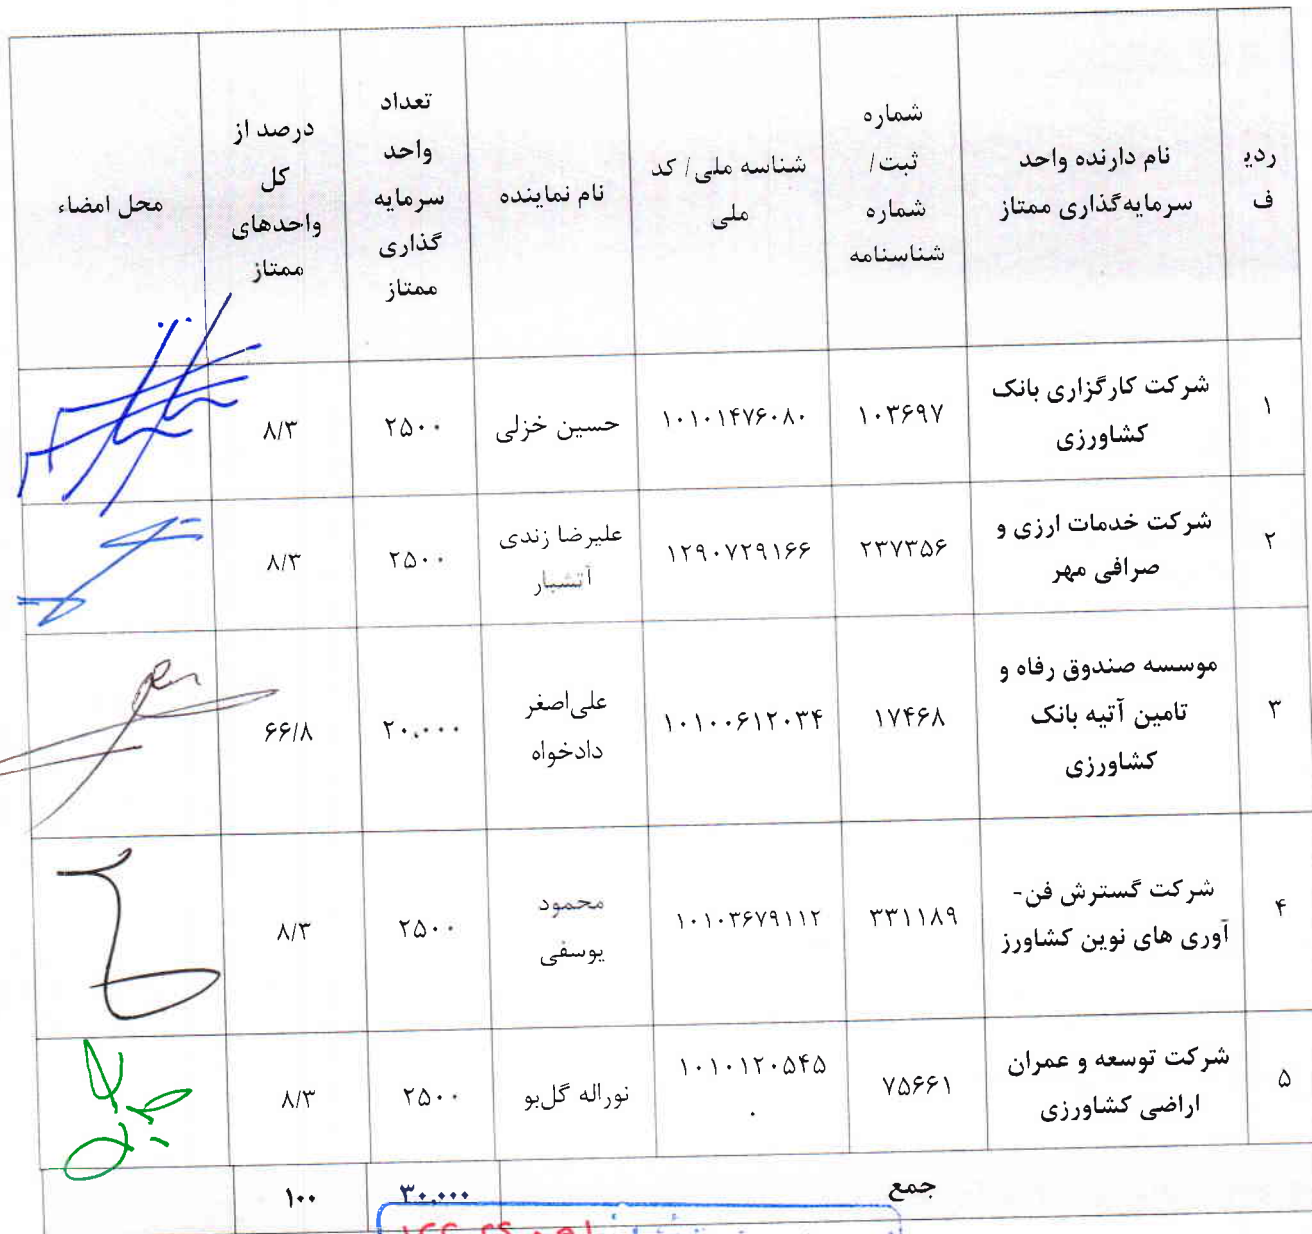 ردیف
نام دارنده واحد سرمایه‌گذاری ممتاز
شماره ثبت/ شماره شناسنامه
شناسه ملی/ کد ملی
نام نماینده
تعداد واحد سرمایه گذاری ممتاز
درصد از کل واحدهای ممتاز
محل امضاء
۱
شرکت کارگزاری بانک کشاورزی
۱۰۳۶۹۷
۱۰۱۰۱۴۷۶۰۸۰
حسین خزلی
۲۵۰۰
۸/۳
۲
شرکت خدمات ارزی و صرافی مهر
۲۳۷۳۵۶
۱۲۹۰۷۲۹۱۶۶
علیرضا زندی آتشبار
۲۵۰۰
۸/۳
۳
موسسه صندوق رفاه و تامین آتیه بانک کشاورزی
۱۷۴۶۸
۱۰۱۰۰۶۱۲۰۳۴
علی‌اصغر دادخواه
۲۰.۰۰۰
۶۶/۸
۴
شرکت گسترش فن-آوری های نوین کشاورز
۳۳۱۱۸۹
۱۰۱۰۳۶۷۹۱۱۲
محمود یوسفی
۲۵۰۰
۸/۳
۵
شرکت توسعه و عمران اراضی کشاورزی
۷۵۶۶۱
۱۰۱۰۱۲۰۵۴۵۰
نوراله گل‌بو
۲۵۰۰
۸/۳
جمع
۳۰.۰۰۰
۱۰۰